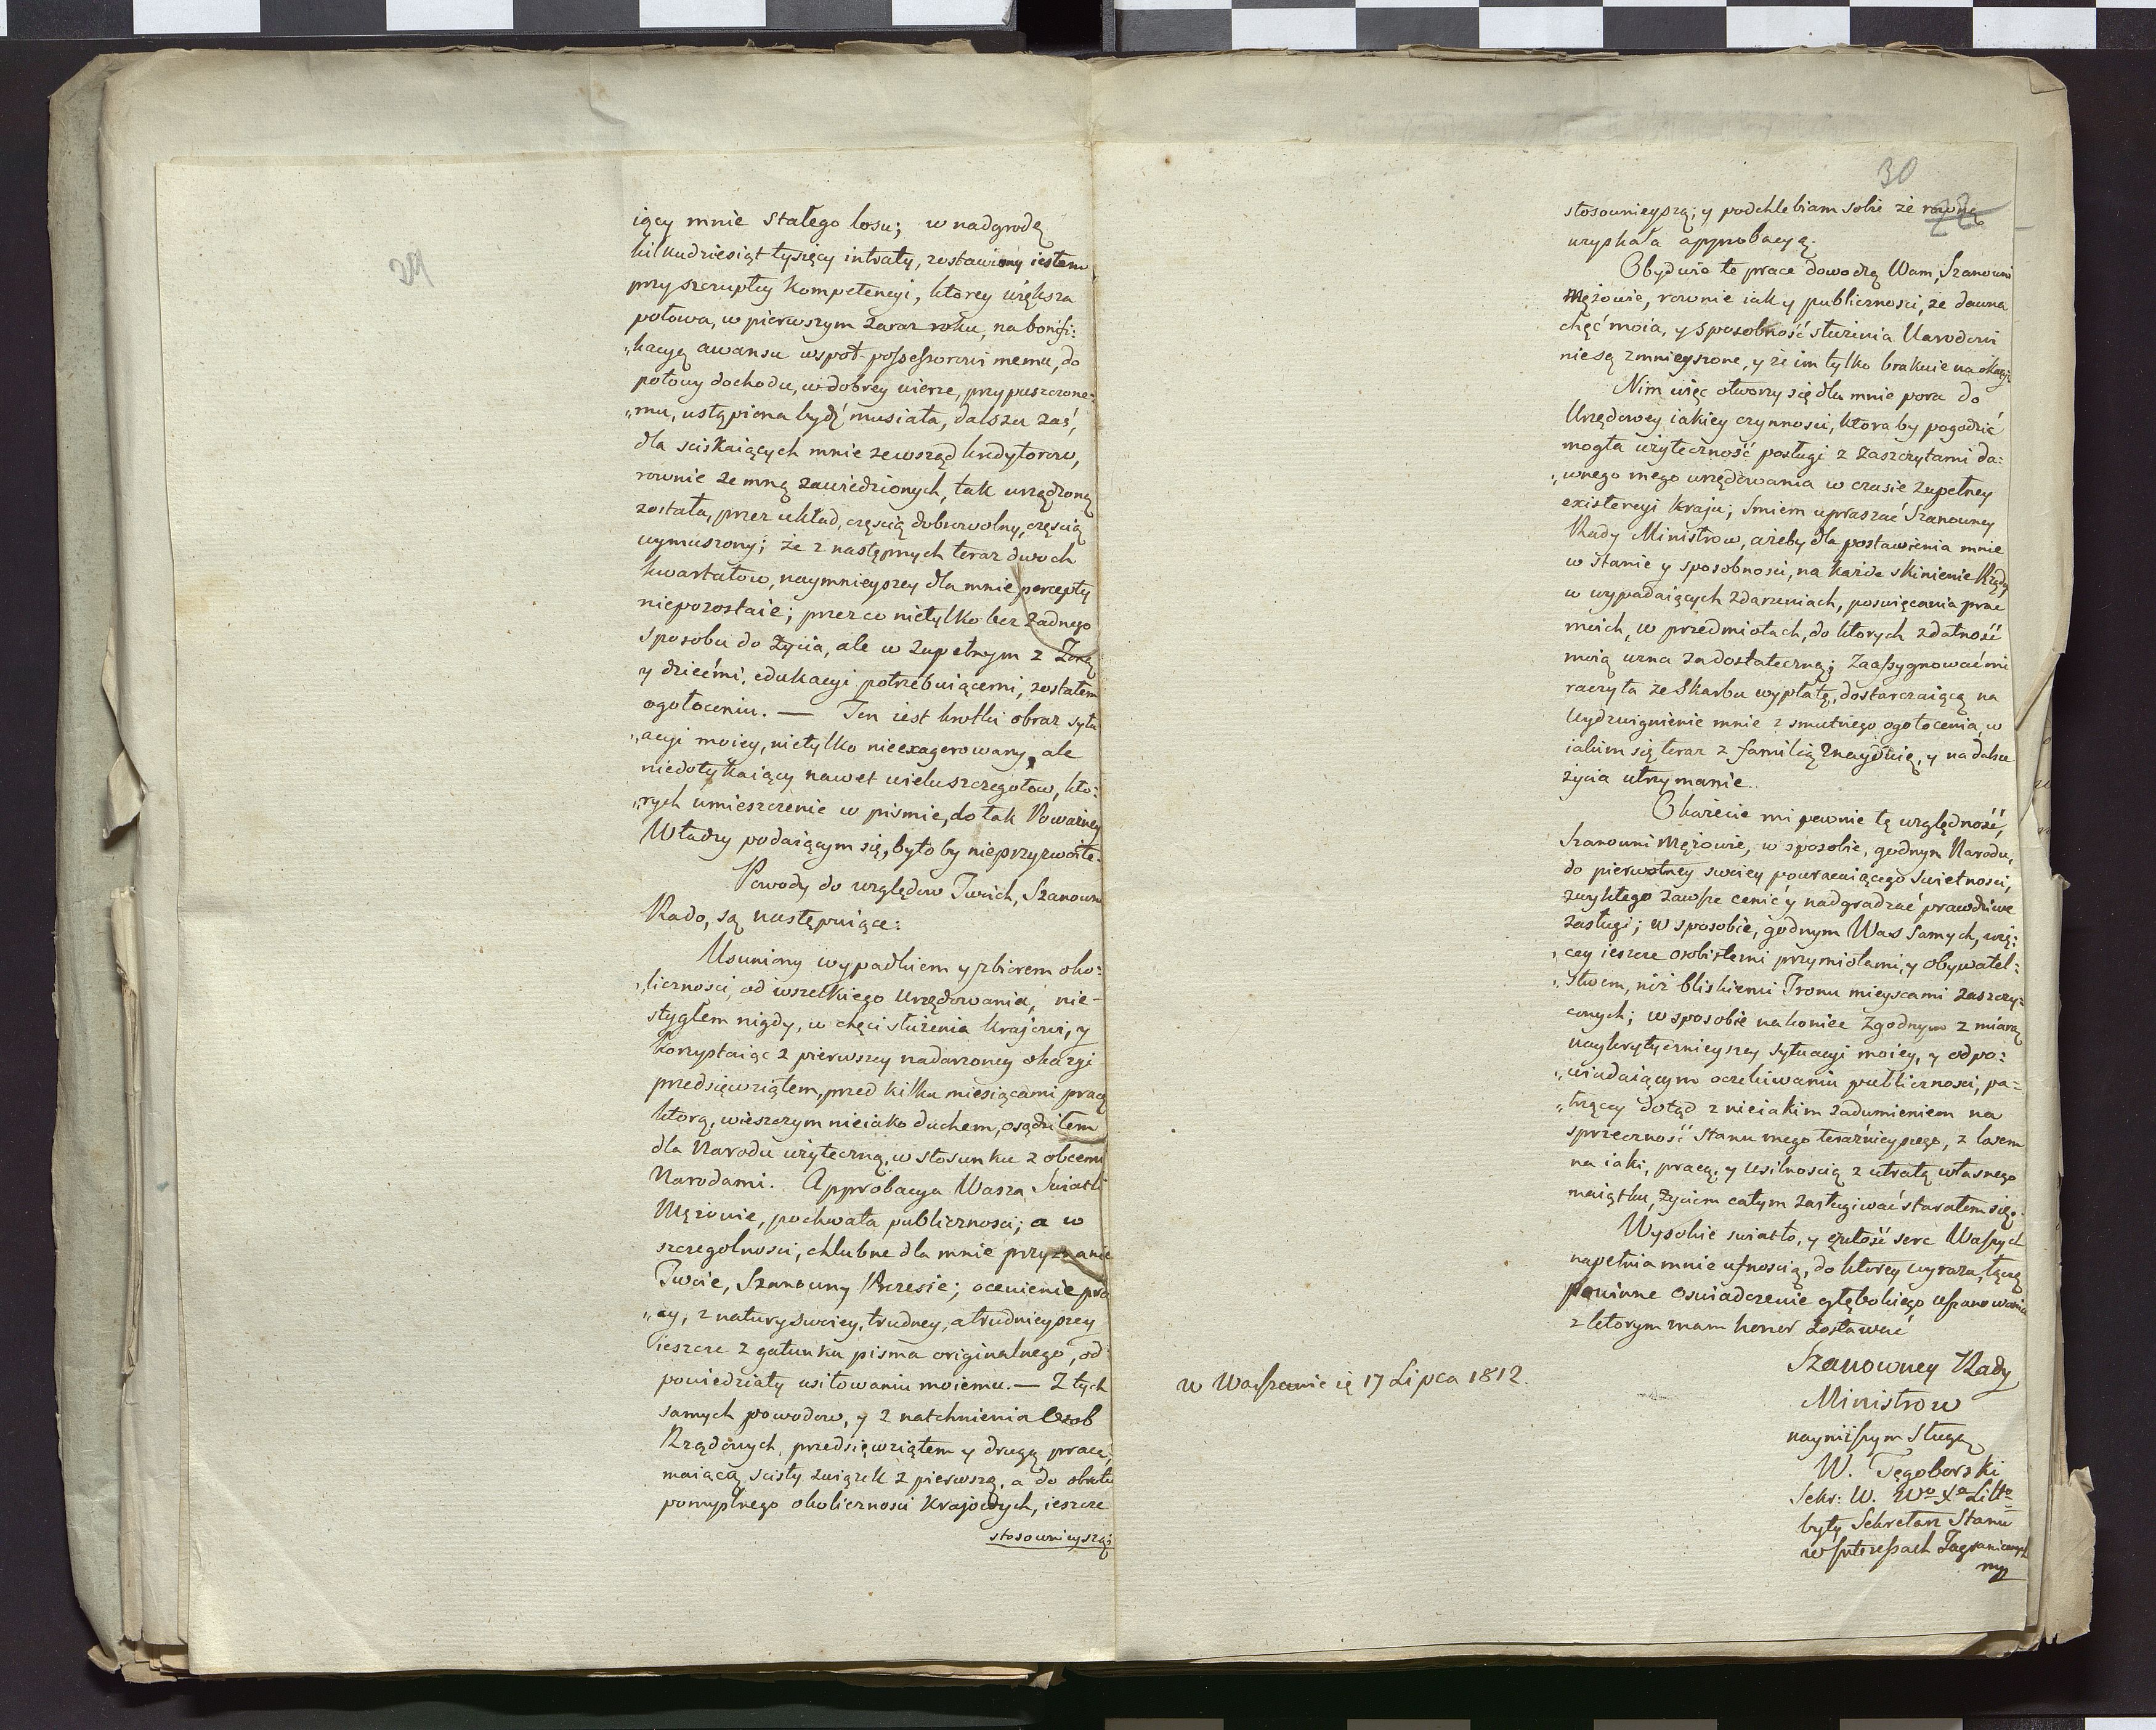 24
iący mnie stałego losu; w nadgrodę
kilkudziesiąt tysięcy intraty, zostawiony iestem
przy szczupłey kompetencyi, ktorey większa
połowa, w pierwszym zaraz roku, na bonifi:
„kacyę awansu wspoł-possessorowi memu, do
połowy dochodu, w dobrey wierze, przypuszczone:
„mu, ustąpiona bydź musiała, dalsza zaś,
dla sciskaiących mnie zewsząd kredytorow,
rownie ze mną zawiedzionych, tak urządzoną
została, przez układ, częscią dobrowolny, częscią
wymuszony; że z następnych teraz dwoch
kwartałow, naymnieyszey dla mnie percepty
niepozostaie; przez co nietylko bez żadnego
sposobu do życia, ale w zupełnym z Żoną
y dziećmi, edukacyi potrzebuiącemi, zostałem
ogołoceniu. — Ten iest krotki obraz sytu
„acyi moiey, nietylko nieexagerowany, ale
niedotykaiący nawet wielu szczegołow, kto:
„rych umieszczenie w pismie, do tak Poważney
Władzy podaiącym się, było by nieprzyzwoite.
Powody do względow Twoich, Szanowna
Rado, są następuiące:
Usuniony wypadkiem y zbiorem oko:
„licznosci, od wszelkiego Urzędowania, nie-
stygłem nigdy, w chęci służenia Krajowi, y
korzystaiąc z pierwszey nadarzoney okazyi
przedsięwziąłem, przed kilku miesiącami pracę
ktorą, wieszczym nieiako duchem, osądziłem
dla Narodu użyteczną, w stosunku z obcemi
Narodami. Approbacya Wasza Swiatli
Mężowie, pochwała publicznosci; a w
szczegolnosci, chlubne dla mnie przyznanie
Twoie, Szanowny Prezesie; ocenienie pra
„cy, z natury swoiey, trudney, a trudnieyszey
ieszcze z gatunku pisma originalnego, od
powiedziały usiłowaniu moiemu. — Z tych
samych powodow, y z natchnienia Osob
Rządowych, przedsięwziąłem y drugą pracę,
maiącą scisły związek z pierwszą, a do obrotu
pomyslnego okolicznosci krajowych, ieszcze
stosownieyszą;
30
22
stosownieyszą; y podchlebiam sobie że rowną
uzyskała approbacyę.
Obydwie te prace dowodzą Wam, Szanowni
Mężowie, rownie iak y publicznosci, że dawna
chęć moia, y sposobność służenia Narodowi
niesą zmnieyszone, y że im tylko brakuie na okazyi.
Nim więc otworzy się dla mnie pora do
Urzędowey iakiey czynnosci, ktoraby pogodzić
mogła użyteczność posługi z zaszczytami da:
„wnego mego urzędowania w czasie zupełney
existencyi kraju; smiem upraszać Szanowney
Rady Ministrow, ażeby dla postawienia mnie
w stanie y sposobnosci, na każde skinienie Rządu
w wypadaiących zdarzeniach, poswięcania prac
moich, w przedmiotach, do ktorych zdatność
moią uzna za dostateczną; zaassygnować mi
raczyła ze Skarbu wypłatę, dostarczaiącą na
wydzwignienie mnie z smutnego ogołocenia, w
iakim się teraz z familią znayduię, y na dalsze
życia utrzymanie.
Okażecie mi pewnie tę względność,
Szanowni Mężowie, w sposobie, godnym Narodu,
do pierwotney swoiey powracaiącego swietnosci,
zwykłego zawsze cenić y nadgradzać prawdziwe
zasługi; w sposobie, godnym Was samych, wię:
„cey ieszcze osobistemi przymiotami, y obywatel:
„stwem, niż bliskiemi Tronu mieyscami zaszczy:
conych; w sposobie nakoniec zgodnym z miarą
naykrytycznieyszey sytuacyi moiey, y odpo:
„wiadaiącym oczekiwaniu publicznosci, pa=
„trzącey dotąd z nieiakim zadumieniem na
sprzeczność stanu mego teraznieyszego, z losem
na iaki, pracą, y usilnoscią z utratą własnego
maiątku, życiem całym zasługiwać starałem się.
Wysokie swiatło, y czułość serc Waszych
napełnia mnie ufnoscią, do ktorey wyrazu, łączę
powinne oswiadczenie głębokiego uszanowania
z ktorym mam honor zostawać
Szanowney Rady
Ministrow
nayniższym Sługą
W. Tęgoborski
Sekr: W. Wo Xa Litto
były Sekretarz Stanu
w Interessach Zagranicznych
mp
w Warszawie d. 17 Lipca 1812.